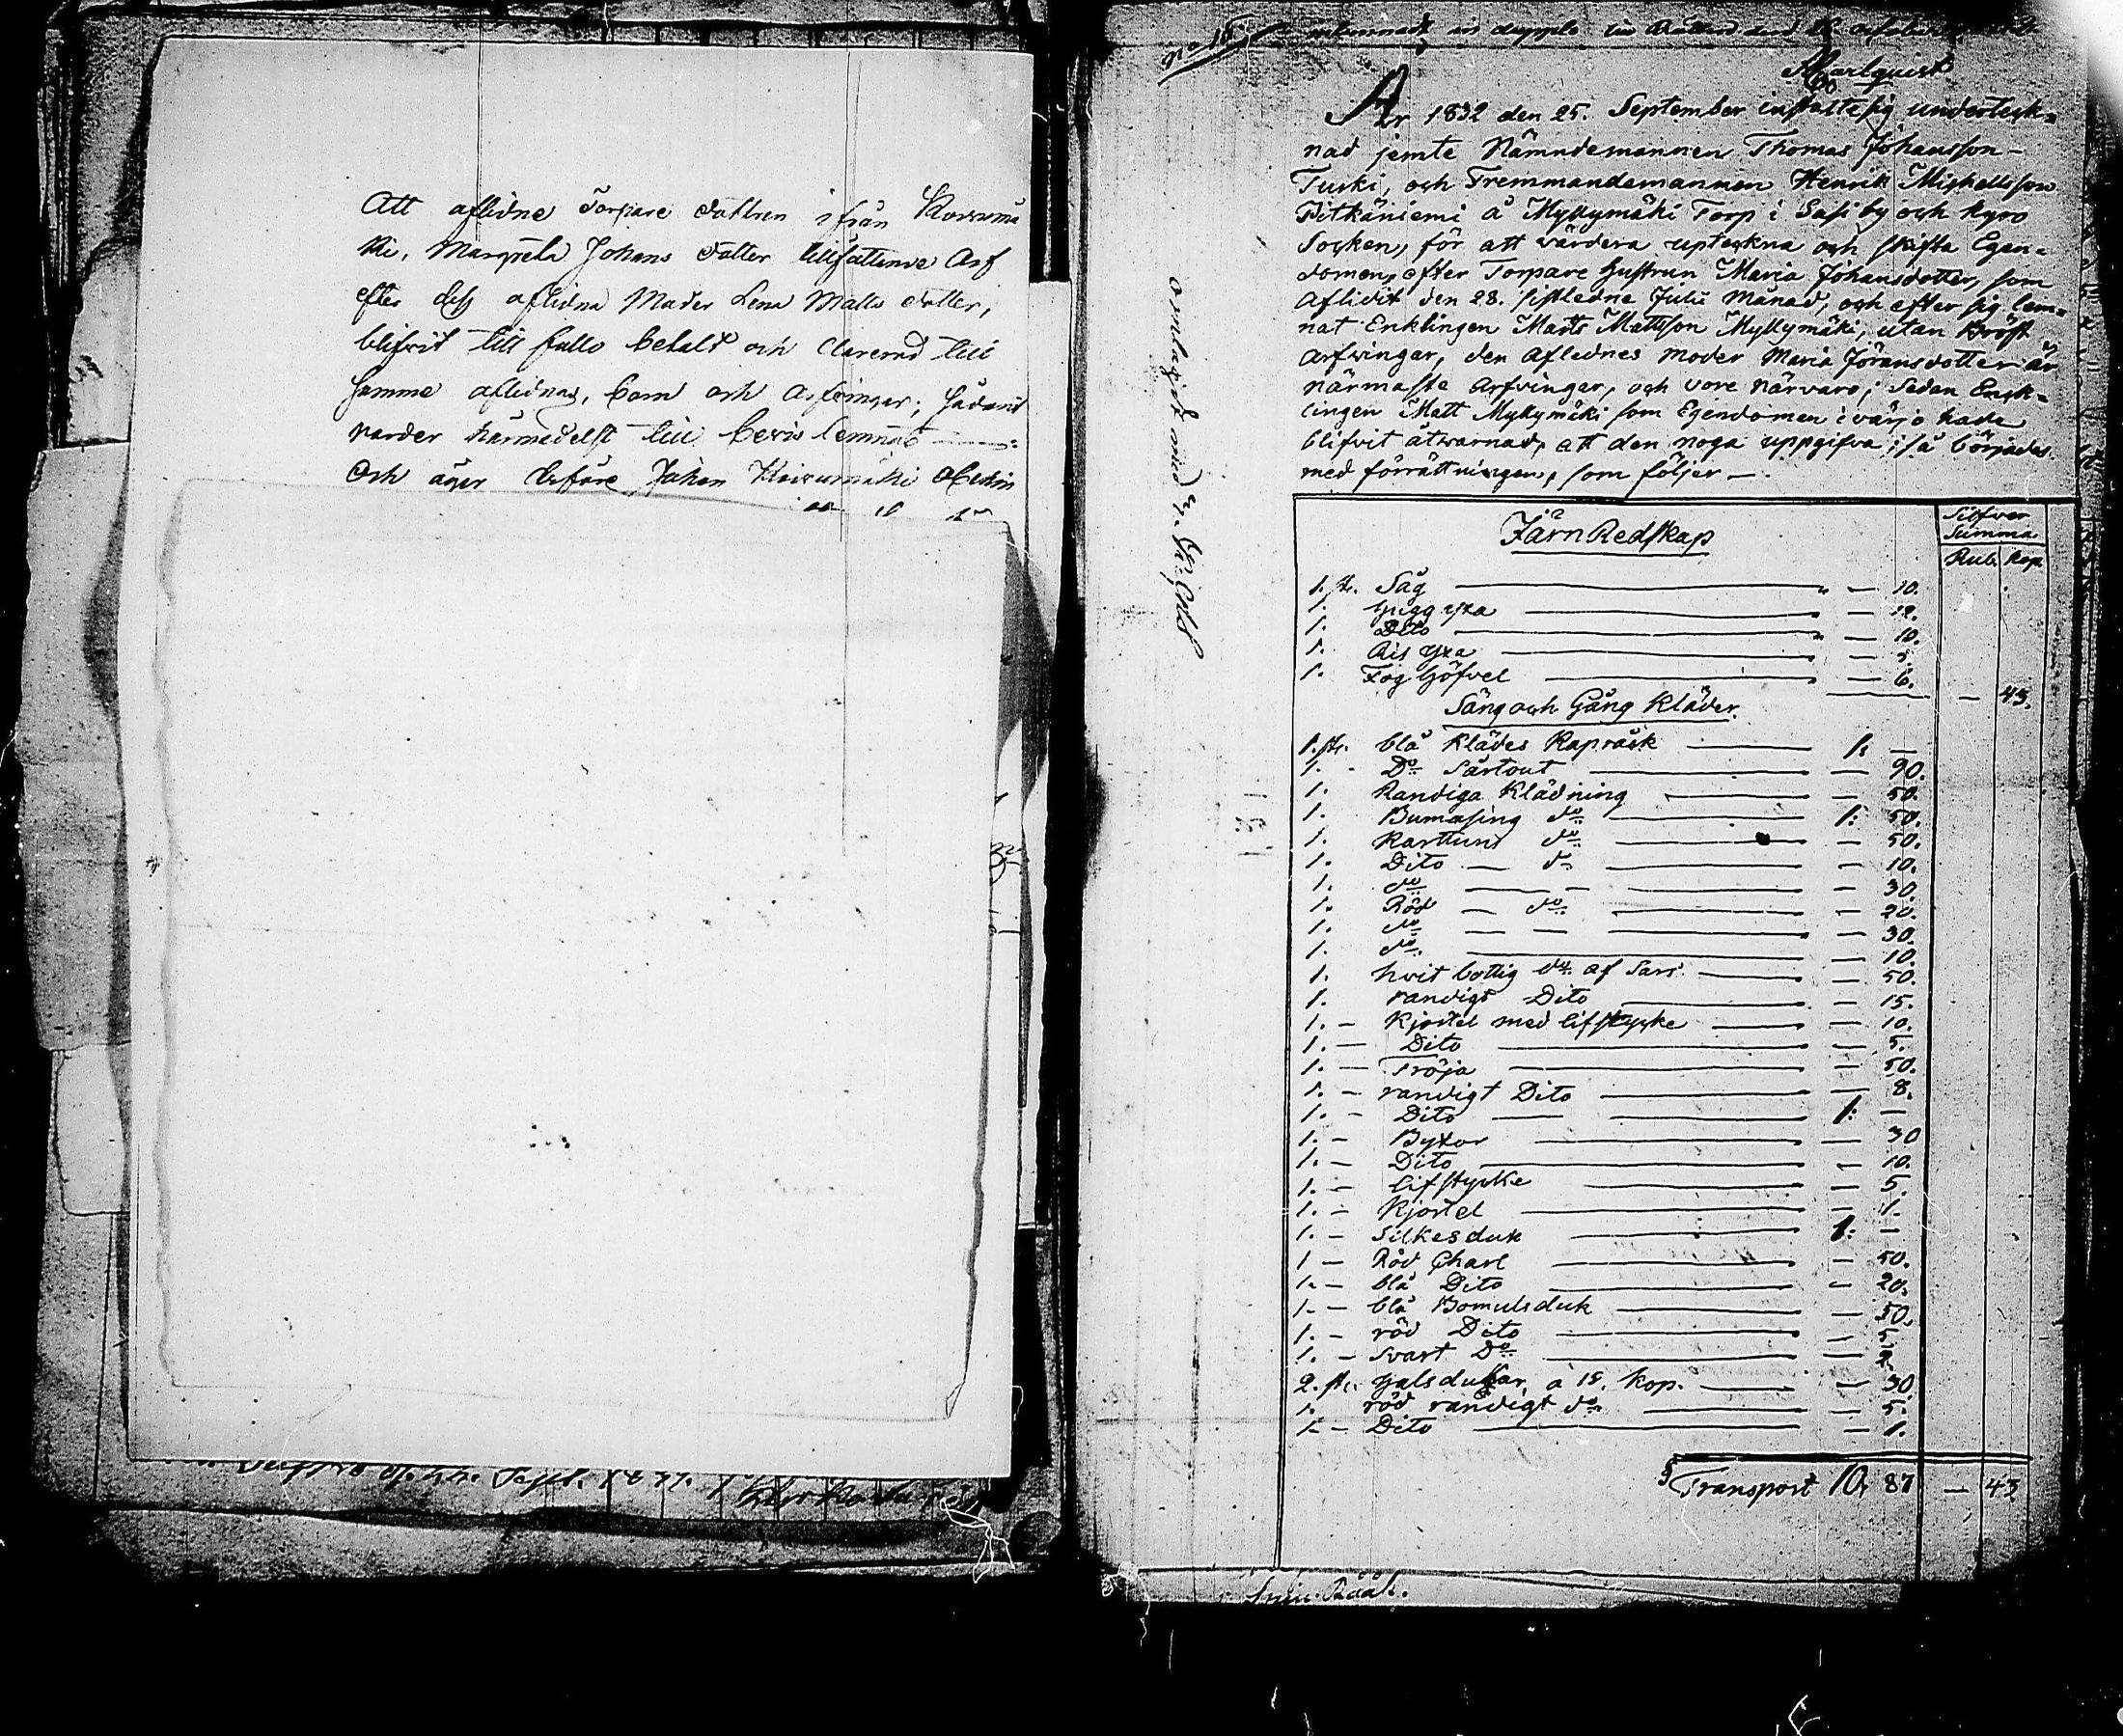 Att aflidne Torpare dottren ifrån Kovvumä
ki, Margreta Johans dotter tillfallende Arf
efter dess aflidna Moder Lena Matts dotter,
blifvit till fullo betalt och clarerad till
samme aflidnas, barn och arfvingar; sådant
varder härmedelst till bevis lemnat
Och äger Johan
Sept.
No 15
in duplo
Carlquist
År 1832 den 25. September instälte sig underteck=
nad jemte Nämndemannen Thomas Johansson
Tuski, och Fremmandemannen Henrik Mickellsson
Pitkäniemi å Myllymäki Torp i Sasi by och Kyro
Socken, för att värdera upteckna och skifta Egen=
domen, efter Torpare hustrun Maria Johansdotter, som
Aflidit den 28. sistledne Julii Månad, och efter sig lem=
nat Enklingen Matts Mattsson Myllymäki, utan Bröst
arfvingar, den Aflednes moder Maria Göransdotter är
närmaste Arfvingar, och vore närvare; Sedan Enck=
lingen Matt Myllymäki som Egendomen i värjo hade
blifvit åtvarnad, att den noga uppgifva; så börjades
med förrättningen, som följer —.
omlagdt med 4. Kop. Silf
Silfver
Summa
Rub. Kop.
Järn Redskap
1. st. Såg — 10.
1. Hugg yxa — 12.
1. Dito — 10.
1. Ris yxa — 5.
1. Fog Höfvel — 6.
— 43.
Säng och Gång Kläder.
1. st. blå Klädes Kapråsk 1: —
1. - Do Sårtout — 90.
1. Randiga Klädning — 50.
1. Bumasing do 1: 50.
1. Karttuns do — 50.
1. Dito — do — 10.
1. do — 30.
1. Röd — do — 20.
1. do — 30.
1. do — 10.
1. hvit bottig do af Sars — 50.
1. randigt Dito — 15.
1. - Kjortel med lifstycke — 10.
1. — Dito — 5.
1. — Tröja — 50.
1. — randigt Dito — 8.
1. - Dito 1: —
1. - Byxor — 30
1. — Dito — 10.
1. - lifstycke — 5.
1. - Kjortel — 1.
1. - Silkesduk 1: —
1 — Röd Charl — 50.
1. — blå Dito — 20.
1. - blå Bomulsduk — 50.
1. - röd Dito — 5
1. - Svart Do — 2.
2. st. Halsdukar à 15. kop. — 30
1. röd randigt do — 5.
1. - Dito — 1.
Transport 10, 87 — 43